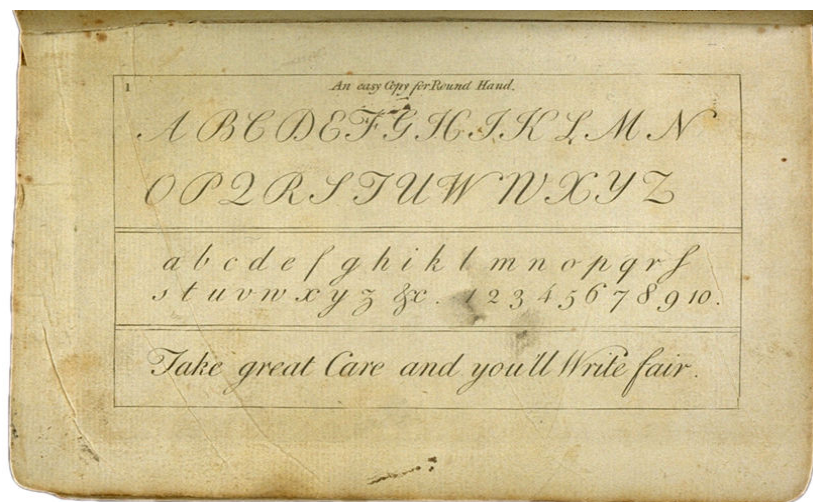 1
An easy Copy for Round Hand.
A B C D E F G H I K L M N
O P Q R S T U W W X Y Z
a b c d e f g h i k l m n o p q r ſ
s t u v w x y z &c. 1 2 3 4 5 6 7 8 9 10.
Take great Care and you'll Write fair.